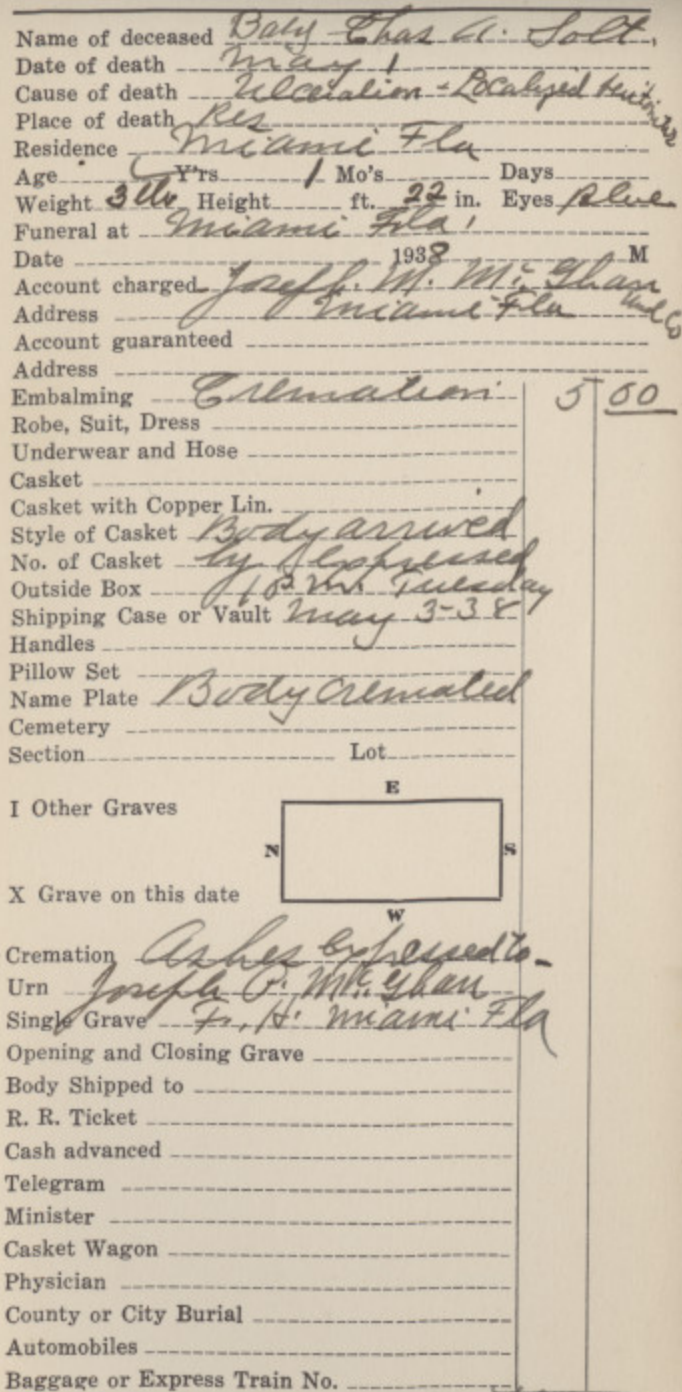 Name of deceased Baby Chas A. Solt.
Date of death May 1
Cause of death Ulceration - Localized Peritonitis
Place of death Res
Residence Miami Fla
Age Y'rs 1 Mo's Days
Weight 3 lbs Height ft. 22 in. Eyes Blue
Funeral at Miami Fla.
Date 1938 M
Account charged Joseph. M. Mc Ghan and Co
Address Miami Fla
Account guaranteed
Address
Embalming Cremation 5 00
Robe, Suit, Dress
Underwear and Hose
Casket
Casket with Copper Lin.
Style of Casket Body arrived
No. of Casket by expressed
Outside Box 1 P.M. Tuesday
Shipping Case or Vault May 3-38
Handles
Pillow Set
Name Plate Body cremated
Cemetery
Section Lot
E
I Other Graves
N S
X Grave on this date
W
Cremation Ashes Expressed to -
Urn Joseph P. Mc. Ghan
Single Grave Fr. H. Miami Fla
Opening and Closing Grave
Body Shipped to
R. R. Ticket
Cash advanced
Telegram
Minister
Casket Wagon
Physician
County or City Burial
Automobiles
Baggage or Express Train No.